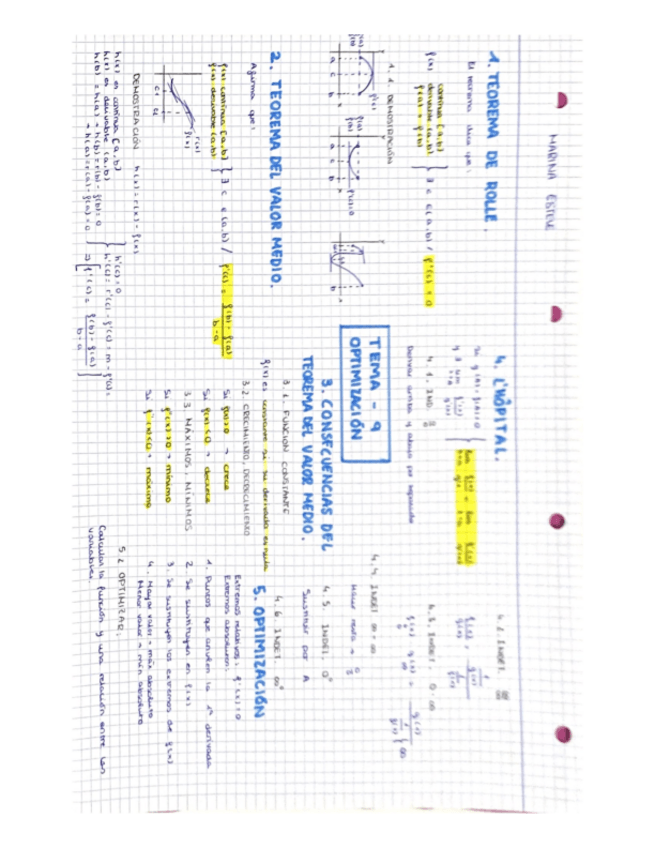 MARINA ESTEVE
1. TEOREMA DE ROLLE.
El teorema dice que:
f(x) continua [a,b]
derivable (a,b)
f(a) = f(b)
∃ c ∈ (a,b) / f'(c) = 0
1.1. DEMOSTRACIÓN
2. TEOREMA DEL VALOR MEDIO.
Afirma que:
f(x) continua [a,b]
f(x) derivable (a,b)
∃ c ∈ (a,b) / f'(c) = f(b) - f(a) / b - a
DEMOSTRACIÓN h(x) = r(x) - f(x)
h(x) es continua [a,b]
h(x) es derivable (a,b)
h(b) = h(a) → h(b) = r(b) - f(b) = 0
→ h(a) = r(a) - f(a) = 0
h'(c) = 0
h'(c) = r'(c) - f'(c) = m - f'(c) =
⇒ f'(c) = f(b) - f(a) / b - a
TEMA - 9
OPTIMIZACIÓN
3. CONSECUENCIAS DEL
TEOREMA DEL VALOR MEDIO.
3.1. FUNCION CONSTANTE
f(x) es constante si su derivada es nula
3.2 CRECIMIENTO, DECRECIMIENTO
Si f'(x) > 0 → crece
Si f'(x) < 0 → decrece
3.3 MÁXIMOS, MÍNIMOS
Si f''(x) > 0 → mínimo
Si f''(x) < 0 → máximo
4. L'HÔPITAL.
4.1. IND. 0/0
Derivar arriba y abajo por separado
4.2. INDET. ∞/∞
4.3. INDET. 0·∞
4.4 INDET ∞ - ∞
Hacer resta → 0/0
4.5. INDET. 0°
Sustituir por A
4.6. INDET. ∞°
5. OPTIMIZACIÓN
Extremos relativos: f'(x) = 0
Extremos absolutos:
1. Puntos que anulen la 1ª derivada
2. Se sustituyen en f(x)
3. Se sustituyen los extremos de f(x)
4. Mayor valor → máx absoluto
Menor valor → mín absoluto
5.2 OPTIMIZAR:
Calcular la función y una relación entre las
variables.